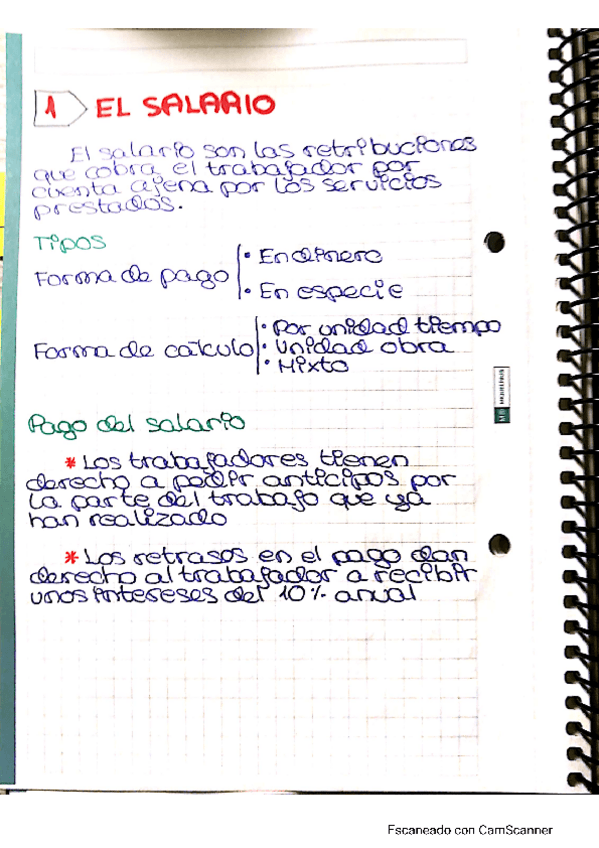 1 EL SALARIO
El salario son las retribuciones
que cobra el trabajador por
cuenta ajena por los servicios
prestados.
Tipos
Forma de pago
• En dinero
• En especie
Forma de cálculo
• Por unidad tiempo
• Unidad obra
• Mixto
Pago del salario
* Los trabajadores tienen
derecho a pedir anticipos por
la parte del trabajo que ya
han realizado
* Los retrasos en el pago dan
derecho al trabajador a recibir
unos intereses del 10% anual
Escaneado con CamScanner